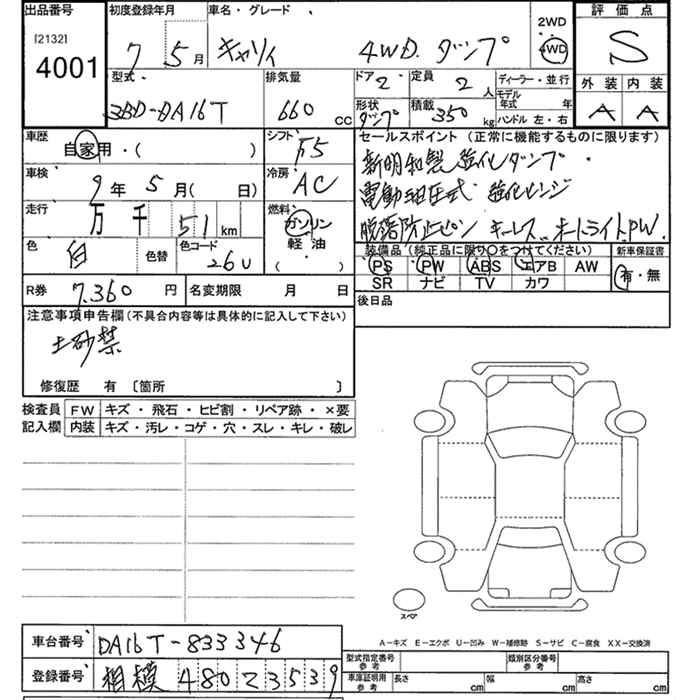 出品番号 初度登録年月 車名・グレード 2WD 評価点
[2132] 4001 7 5月 キャリィ 4WD. ダンプ 4WD S
型式 排気量 ドア 2 定員 2人 ディーラー・並行 外装 内装
モデル年式 年
3BD-DA16T 660cc 形状 ダンプ 積載 350kg ハンドル 左・右 A A
車歴 自家用・( ) シフト F5 セールスポイント (正常に機能するものに限ります)
車検 9年 5月( 日) 冷房 AC 新明和製 強化ダンプ.
走行 万 千 51km 燃料 ガソリン 軽油 ( ) 電動油圧式 強化ヒンジ
脱落防止ピン キーレス オートライト PW.
色 白 色替 色コード 26U 装備品(純正品に限り○をつけてください) 新車保証書
PS PW ABS エアB AW 有・無
R券 7.360円 名変期限 月 日 SR ナビ TV カワ
後日品
注意事項申告欄(不具合内容等は具体的に記入して下さい)
土砂禁
修復歴 有 〔箇所 〕
検査員 FW キズ・飛石・ヒビ割・リペア跡・×要
記入欄 内装 キズ・汚レ・コゲ・穴・スレ・キレ・破レ
スペア
A−キズ E−エクボ U−凹み W−補修跡 S−サビ C−腐食 XX−交換済
車台番号 DA16T-833346 型式指定番号 参考 類別区分番号 参考
登録番号 相模 480 2 3539 車庫証明用 参考 長さ cm 幅 cm 高さ cm